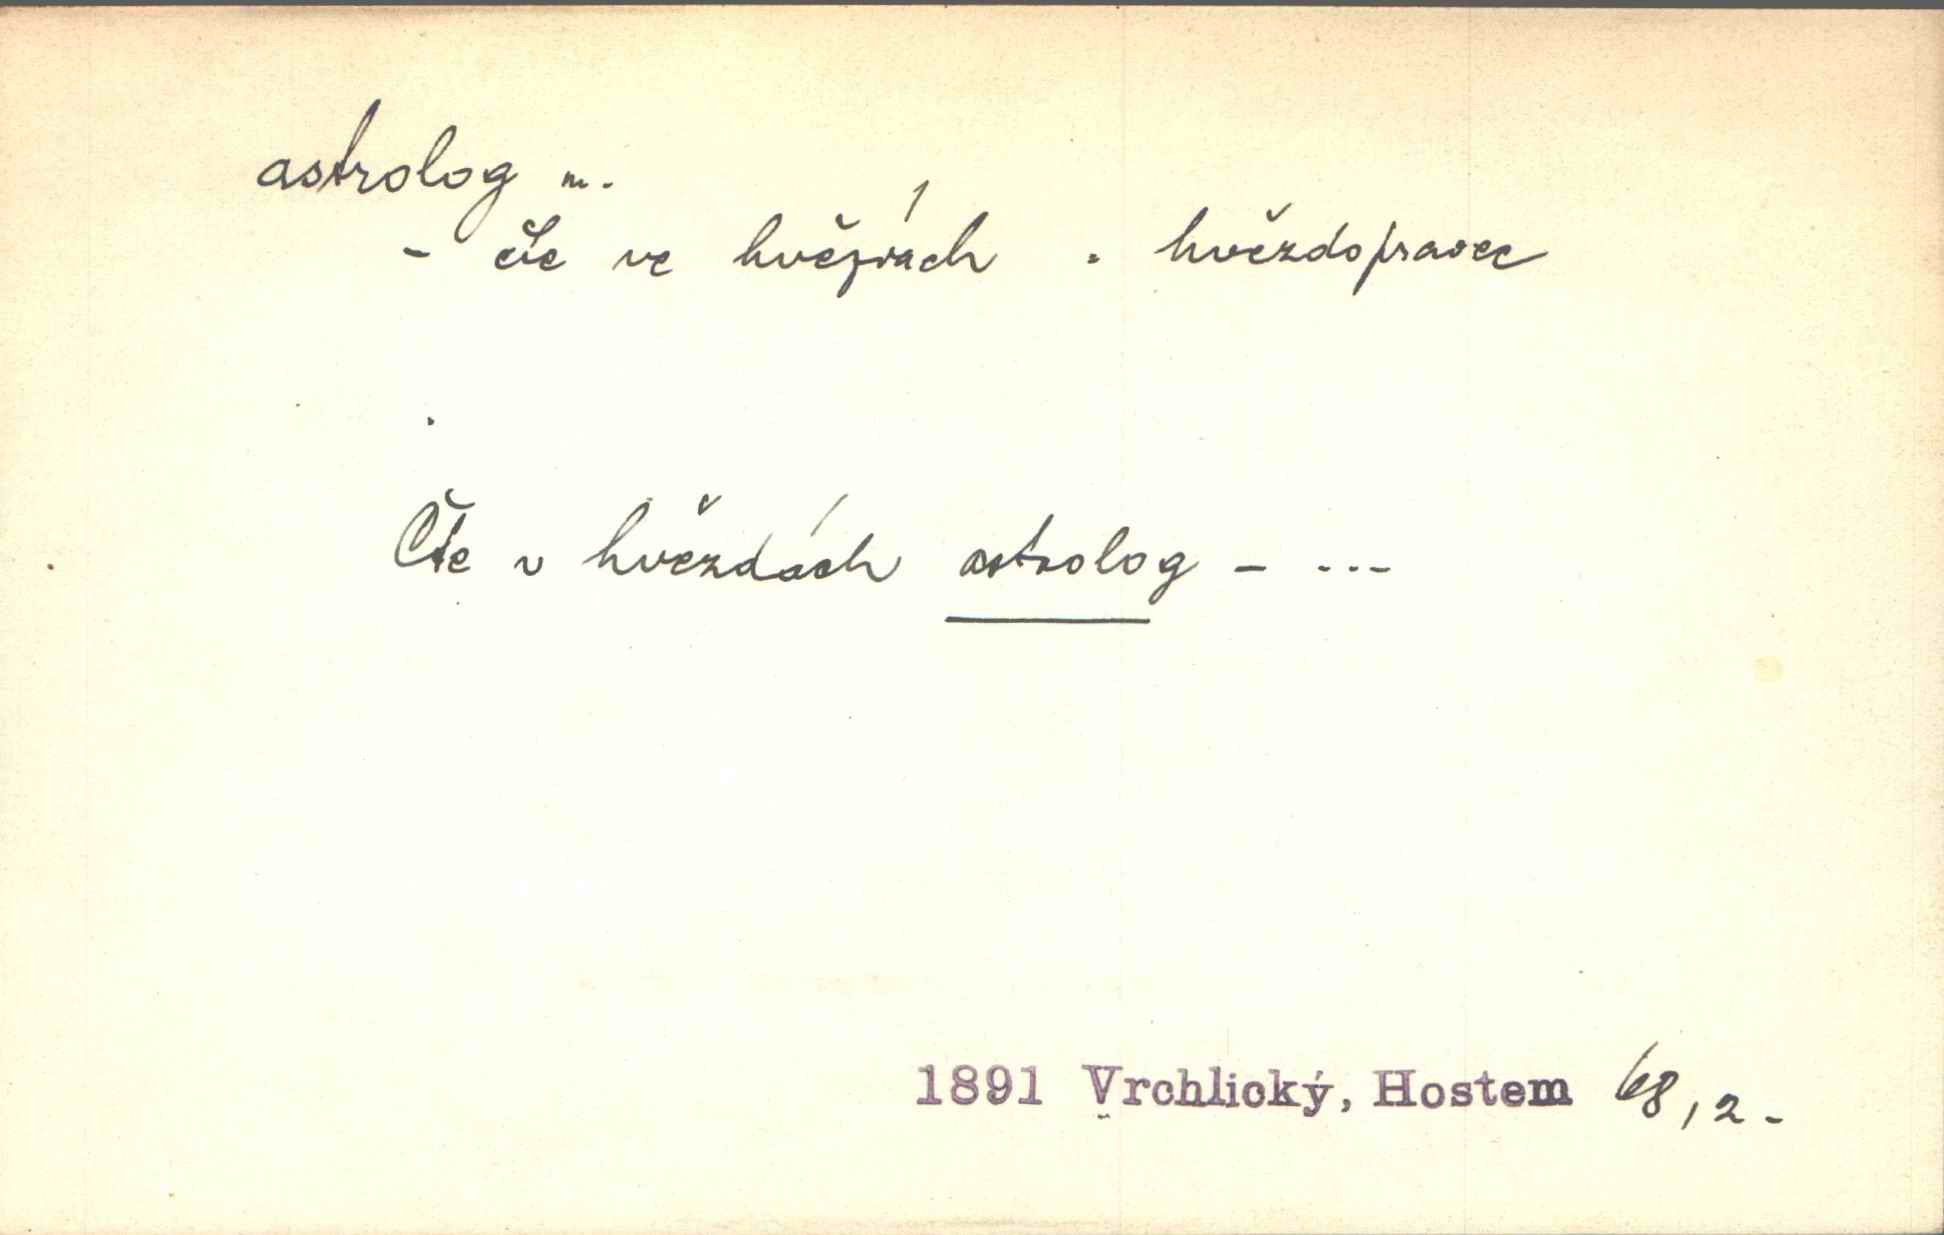 astrolog m.
- čte ve hvězdách . hvězdopravec
Čte v hvězdách astrolog - ...
1891 Vrchlický, Hostem 68,2.